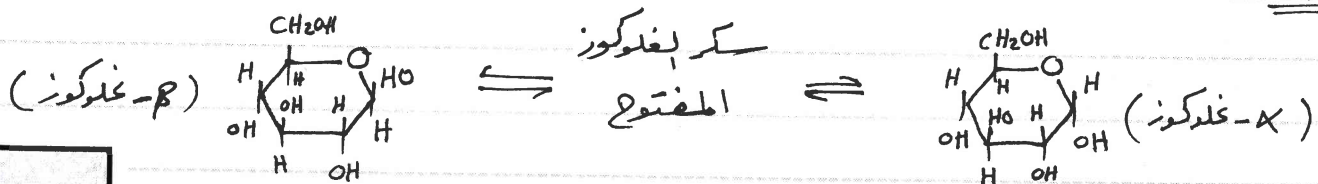 (α - غلوكوز)
CH₂OH
O
H H H
HO H
OH OH
H OH
⇌
سكر الغلوكوز
المفتوح
⇌
CH₂OH
O
H H HO
OH H
OH H
H OH
(β - غلوكوز)